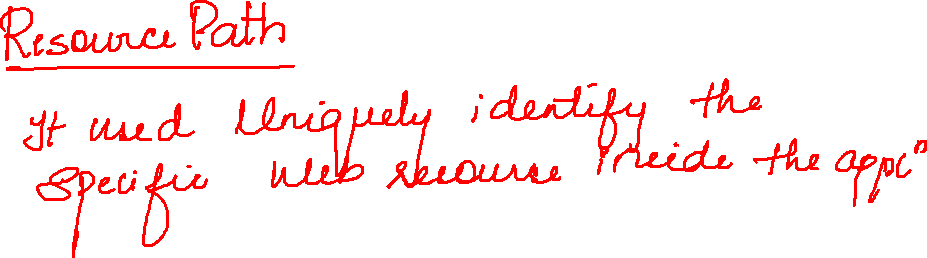 Resource Path
It used Uniquely identify the
specific web resource inside the appcⁿ